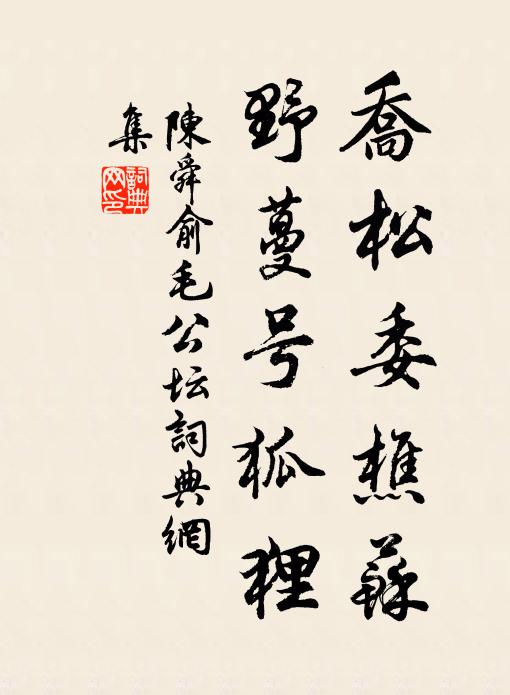 喬松委樵蘇
野蔓号狐狸
陳舜俞毛公坛詞典網
集
詞典
网印